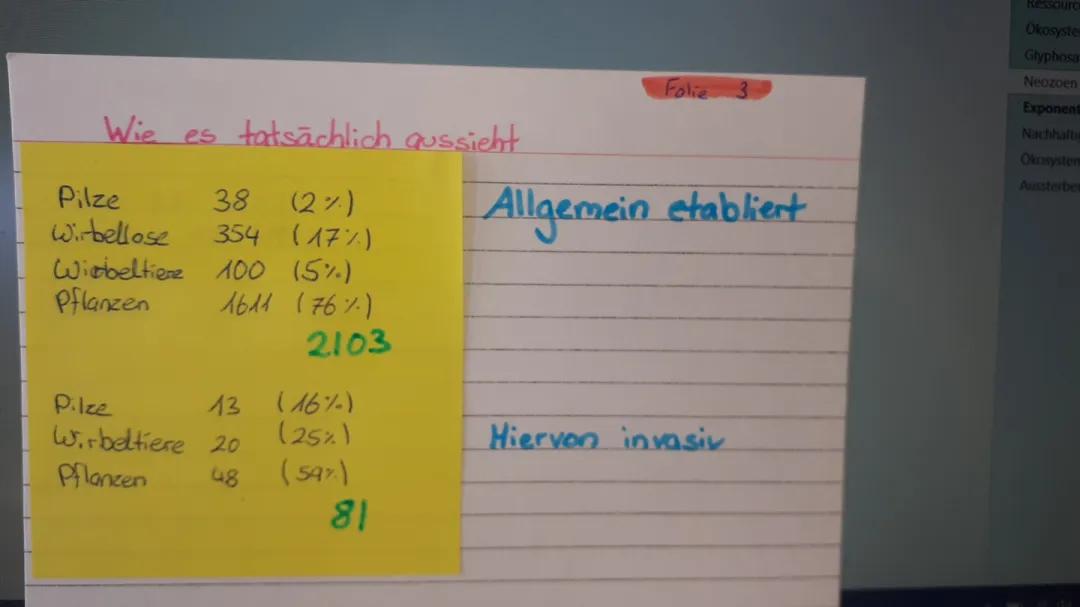 Folie 3
Wie es tatsächlich aussieht
Pilze 38 (2%)
Wirbellose 354 (17%)
Wirbeltiere 100 (5%)
Pflanzen 1611 (76%)
2103
Allgemein etabliert
Pilze 13 (16%)
Wirbeltiere 20 (25%)
Pflanzen 48 (59%)
81
Hiervon invasiv
Neozoen